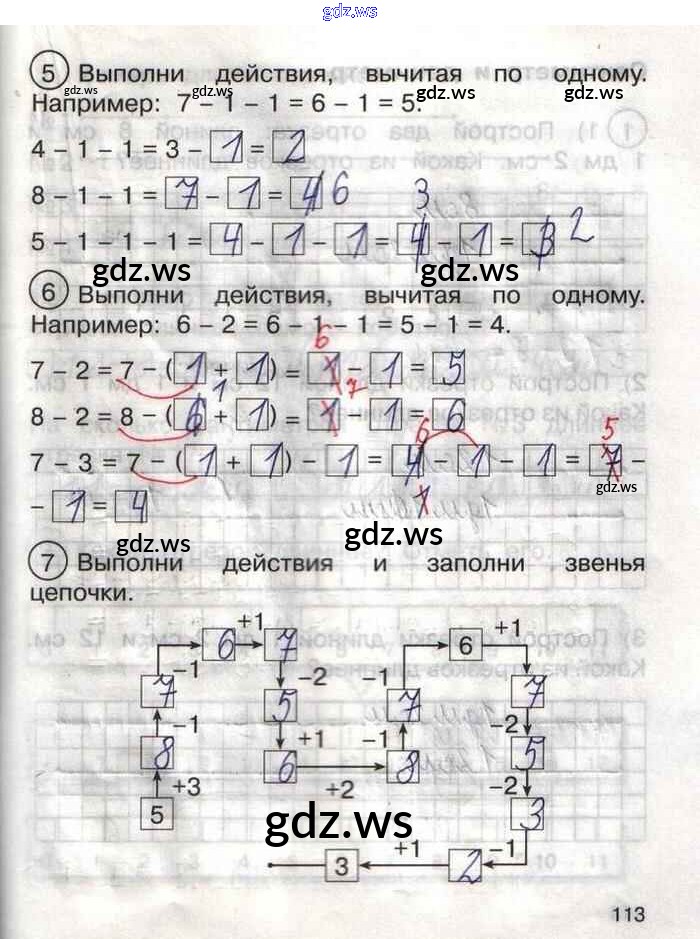 gdz.ws
5 Выполни действия, вычитая по одному.
gdz.ws gdz.ws gdz.ws gdz.ws
Например: 7 – 1 – 1 = 6 – 1 = 5.
4 – 1 – 1 = 3 – 1 = 2
8 – 1 – 1 = 7 – 1 = 4 6
3
5 – 1 – 1 – 1 = 4 – 1 – 1 = 4 – 1 = 3 2
gdz.ws gdz.ws
6 Выполни действия, вычитая по одному.
Например: 6 – 2 = 6 – 1 – 1 = 5 – 1 = 4.
6
7 – 2 = 7 – (1 + 1) = 1 – 1 = 5
1 7
8 – 2 = 8 – (6 + 1) = 1 – 1 = 6
6 5
7 – 3 = 7 – (1 + 1) – 1 = 4 – 1 – 1 = 7 –
gdz.ws
1
– 1 = 4
gdz.ws gdz.ws
7 Выполни действия и заполни звенья
цепочки.
+1 +1
6 7 6
–1 –2 –1
7 5 7 7
–1 +1 –1 –2
8 6 8 5
+3 +2 –2
5 3
gdz.ws
+1 –1
3 2
113